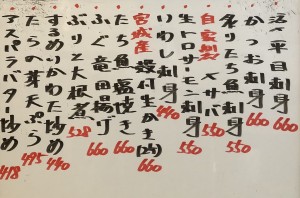 活〆平目刺身 660
かつお刺身 660
炙りたち魚刺身 550
自家製〆サバ 550
生トロサーモン刺身
いわし刺身 440
宮城産 殻付生かき(2ヶ) 660
たち魚塩焼き 660
ふぐ竜田揚げ 660
ぶりと大根煮 528
するめいかわた炒め 440
たらの芽天ぷら 495
アスパラバター炒め 418